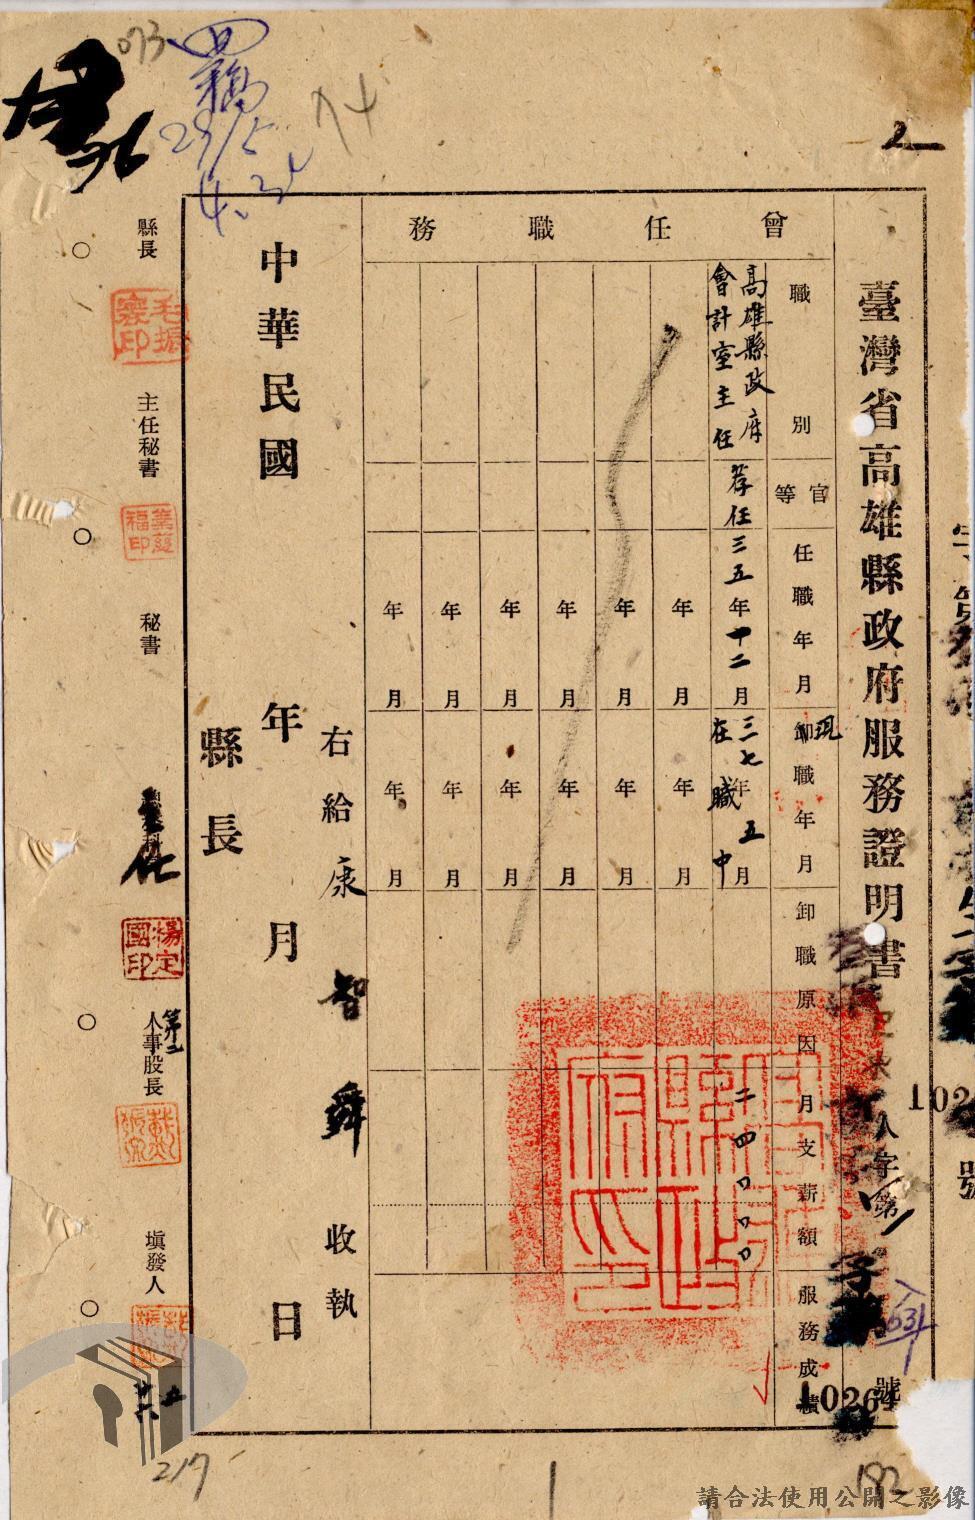 臺灣省高雄縣政府服務證明書
人字第
號
10264
曾任職務
職別
官等
任職年月
卸職年月
現
卸職原因
月支薪額
服務成績
高雄縣政府
會計室主任
荐任
三五年十二月
三七年五月
在職中
二四〇〇〇
年月
年月
年月
年月
年月
年月
年月
年月
年月
年月
年月
年月
右給康智舜收執
中華民國年月日
縣長
縣長
毛振寰印
主任秘書
秘書
主任
楊定國印
第二
人事股長
填發人
073
29/5
74
217
192
請合法使用公開之影像